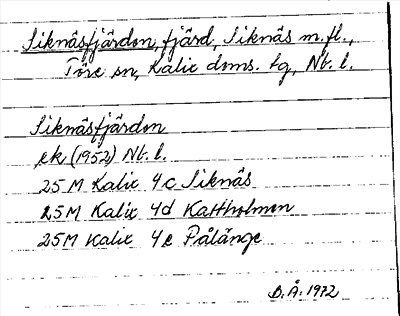 Siknäsfjärden, fjärd, Siknäs m.fl.,
Töre sn, Kalix doms. tg, Nb. l.
Siknäsfjärden
ek (1952) Nb. l.
25 M Kalix 4c Siknäs
25 M Kalix 4d Kattholmen
25 M Kalix 4e Pålänge
B.Å. 1972